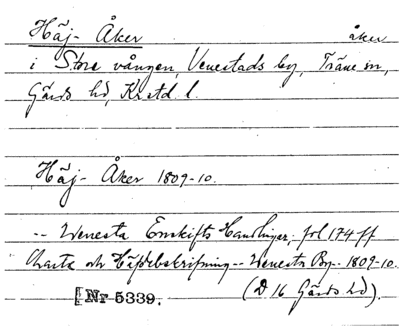 Häj- Åker åker
i Store vången, Venestads by, Träne sn,
Gärds hd, Krstd. l.
Häj- Åker 1809-10.
-- Wenesta Enskifts Handlingar, fol 174 ff
Charta och Häfdebeskrifning -- Wenesta By -- 1809-10.
[Nr 5339. (D 16 Gärds hd).